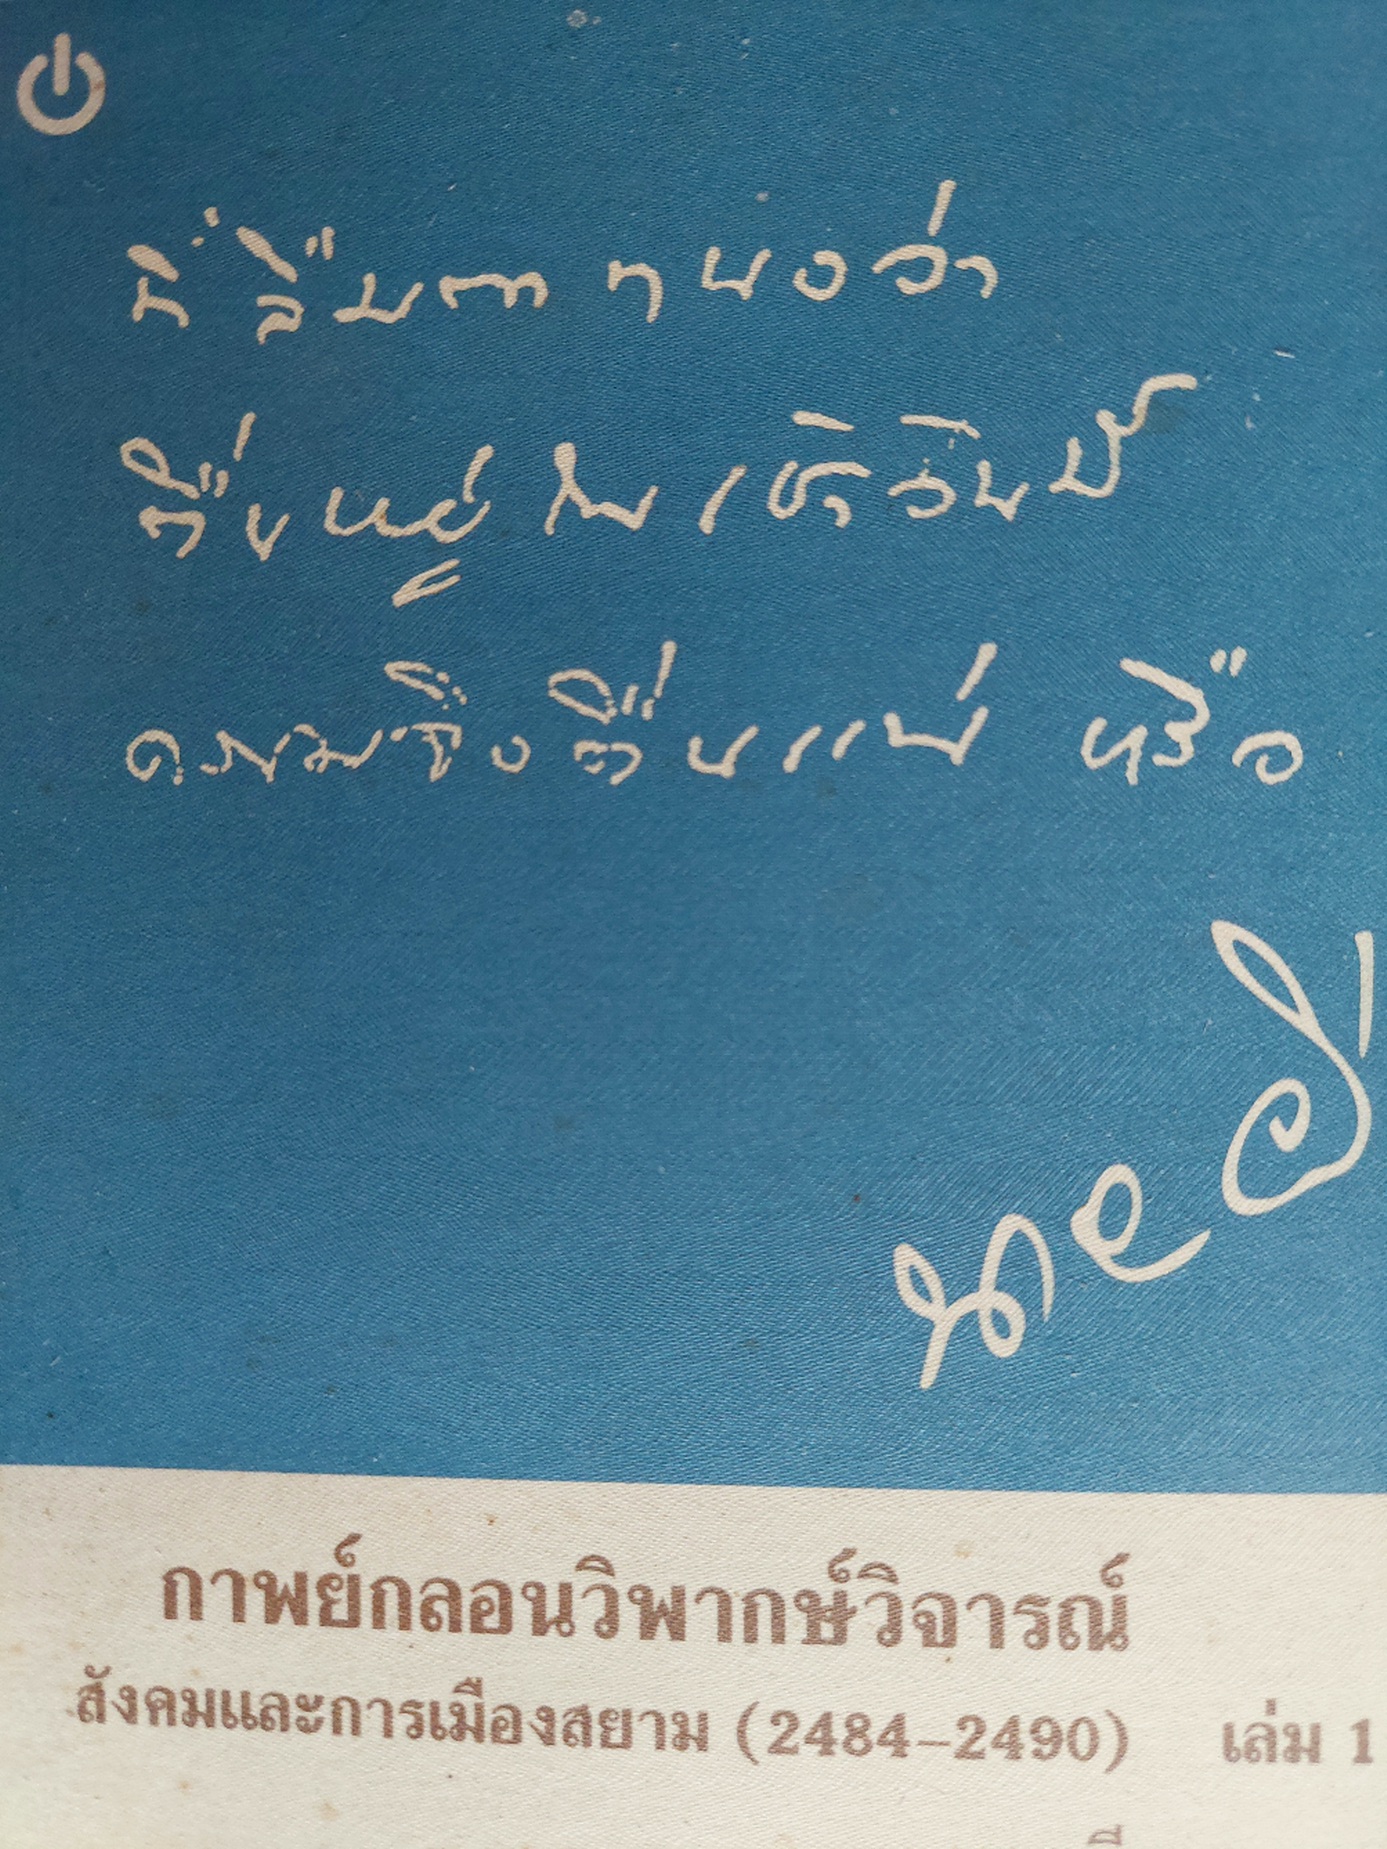 ที่ลืมตา มองว่า
ตื่นอยู่ ใน เช้าวันนี้
ความจริงตื่นแน่ หรือ
นายผี
กาพย์กลอนวิพากษ์วิจารณ์
สังคมและการเมืองสยาม (2484-2490) เล่ม 1